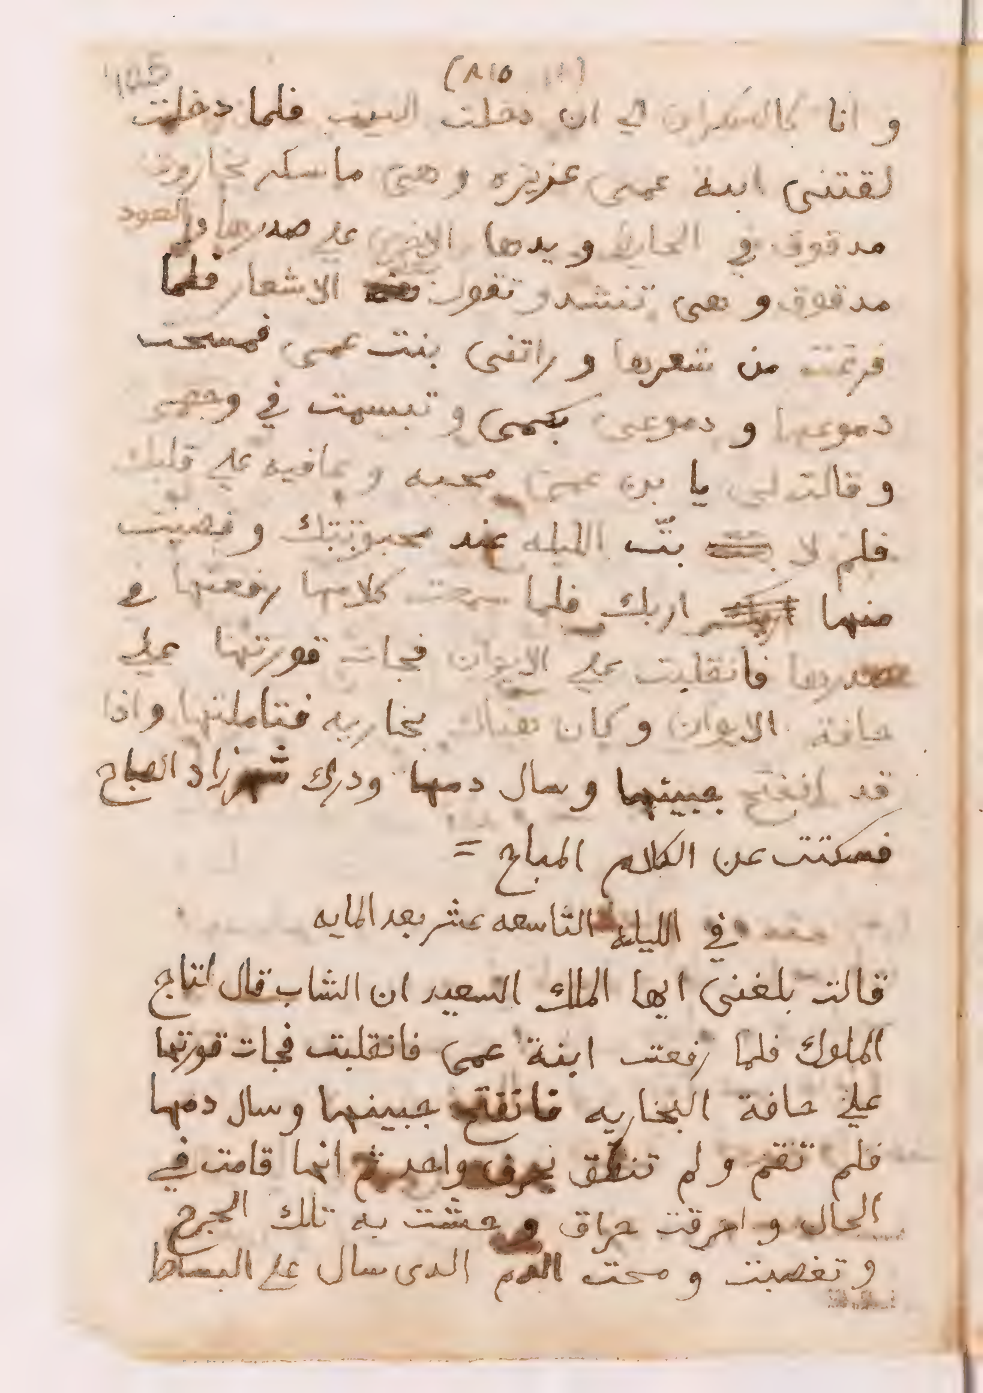 (٨١٥)
و انا كالسكران الي ان دخلت البيت فلما دخلت
لقتني ابنة عمي عزيزه وهي ماسكه بخاروق
مدقوق في الحايط ويدها الاخري علي صدرها والعود
مدقوق وهي تنشد وتقول الاشعار فلما
فرغت من شعرها وراتني بنت عمي فمسحت
دموعها ودموعي بكمي وتبسمت في وجهي
وقالت لي يا بن عمي محبه وعافيه علي قلبك
فلم لا بتّ الليله عند محبوبتك وقضيت
منها اربك فلما سمعت كلامها رفعتها في
صدرها فانقلبت علي الايوان فجات قورتها علي
حافة الايوان وكان هناك بخاريه فتاملتها واذا
قد انفتح جبينها وسال دمها ودرك شهرزاد الصباح
فسكتت عن الكلام المباح =
في الليلة التاسعه عشر بعد المايه
قالت بلغني ايها الملك السعيد ان الشاب قال لتاج
الملوك فلما رفعت ابنة عمي فانقلبت فجات قورتها
علي حافة البخاريه فانفتح جبينها وسال دمها
فلم تقم ولم تنطق بحرف واحد ثم انها قامت في
الحال واحرقت حراق وحشت به تلك الجرح
وتعصبت ومحت الدم الدي سال علي البساط